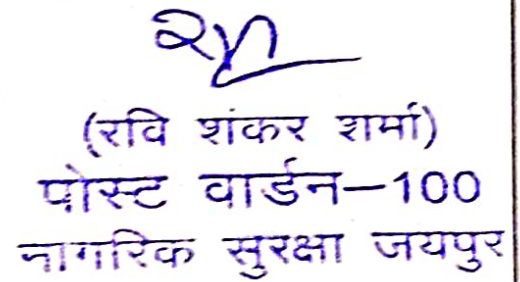 (रवि शंकर शर्मा)
पोस्ट वार्डन-100
नागरिक सुरक्षा जयपुर